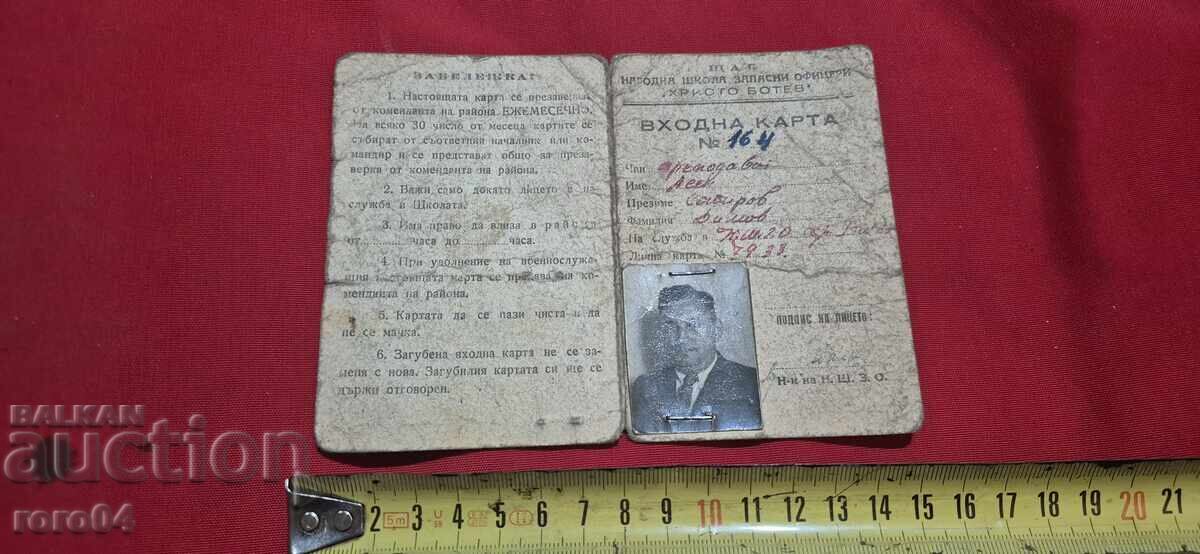 ЗАБЕЛЕЖКА:
1. Настоящата карта се презаве
от коменданта на района ЕЖЕМЕСЕЧНО.
На всяко 30 число от месеца картите се
събират от съответния началник или ко-
мандир и се представят общо за преза-
верка от коменданта на района.
2. Важи само докато лицето е на
служба в Школата.
3. Има право да влиза в район
от ........ часа до ........ часа.
4. При уволнение на военнослужа
настоящата карта се предава на ко-
менданта на района.
5. Картата да се пази чиста и да
не се мачка.
6. Загубена входна карта не се за-
меня с нова. Загубилия картата си ще се
държи отговорен.
ЩАБ
НАРОДНА ШКОЛА ЗАПАСНИ ОФИЦЕРИ
„ХРИСТО БОТЕВ"
ВХОДНА КАРТА
№ 164
Чин преподавател
Име Асен
Презиме
Фамилия Димов
На служба в Н.Ш.З.О. Хр. Ботев
Лична карта № 7933.
ПОДПИС НА ЛИЦЕТО:
Н-к на Н. Ш. З. О.
BALKAN
auction
roro04
2 5m 3 4 5 6 7 8 9 10 11 12 13 14 15 16 17 18 19 20 21